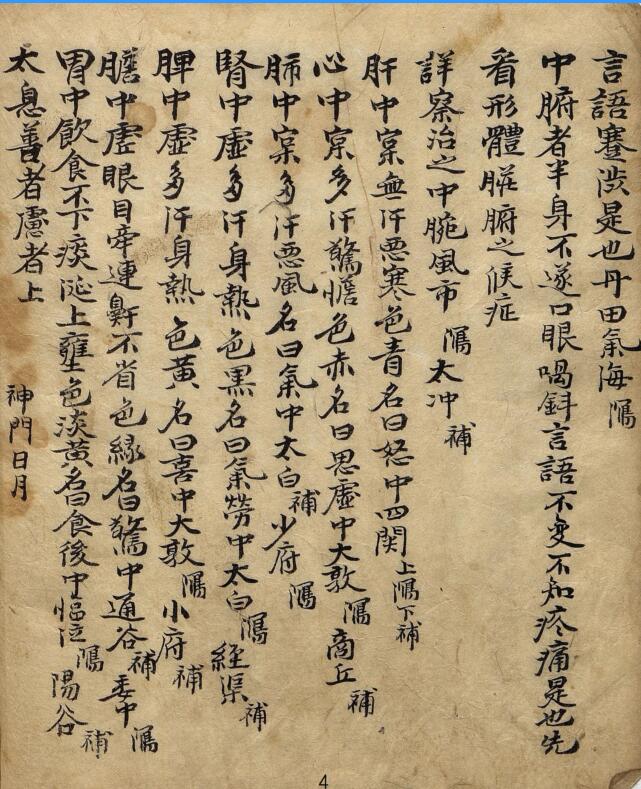 言語蹇澁是也丹田氣海㵼
中腑者半身不遂口眼喎斜言語不变不知疼痛是也先
看形體脏腑之候症
詳察治之中脘風市㵼太冲補
肝中宲無汗悪寒色青名曰怒中四関上㵼下補
心中宲多汗驚惂色赤名曰思虛中大敦㵼商丘補
肺中宲多汗悪風名曰氣中太白補少府㵼
腎中虛多汗身熱色黒名曰氣勞中太白㵼経渠補
脾中虛多汗身熱色黄名曰喜中大敦㵼小府補
膽中虛眼目牵連鼾不省色緑名曰驚中通谷補委中㵼
胃中飲食不下痰涎上壅色淡黄名曰食後中㵼陽谷補
太息善者慮者上神門日月
4